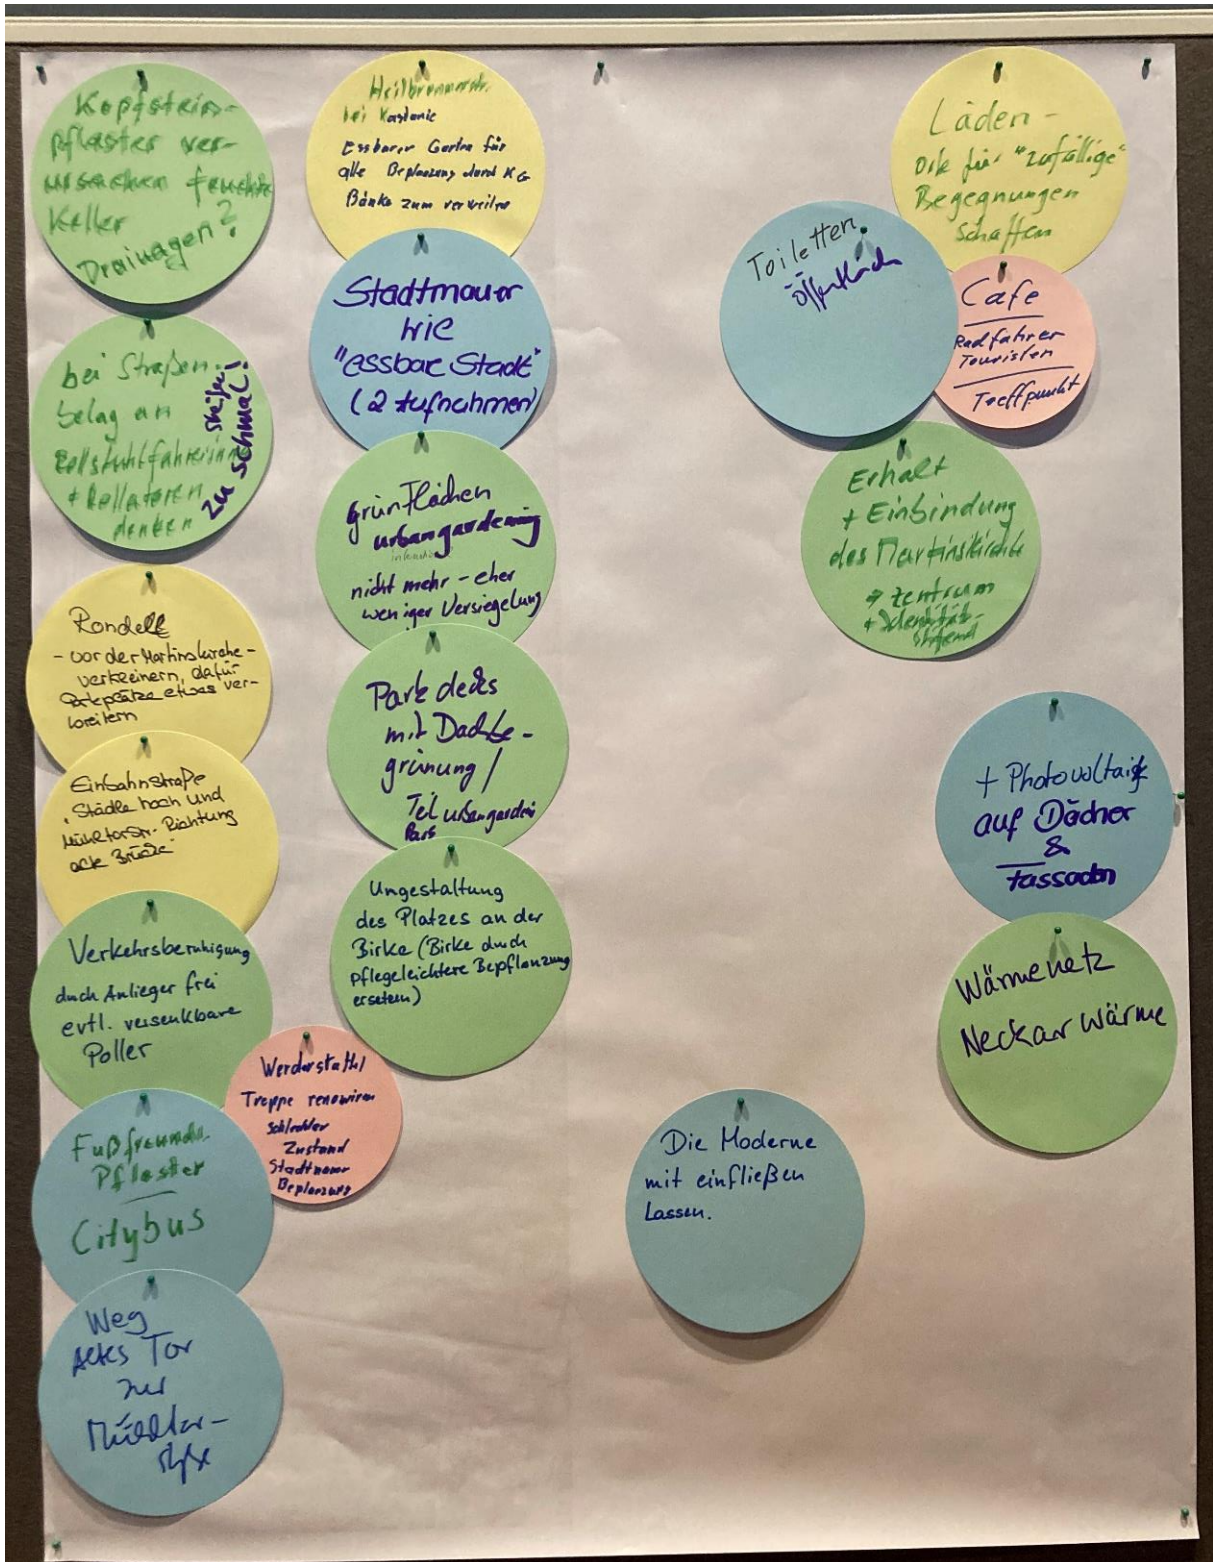 Kopfstein-
pflaster ver-
ursachen feuchte
Keller
Drainagen?
bei Straßen-
belag an
Rollstuhlfahrerinn
+ Rollatoren
denken
zu schmal!
Rondell
- vor der Martinskirche -
verkleinern, dafür
Parkplätze etwas ver-
breitern
Einbahnstraße
"Städle hoch und
Mühltorstr. Richtung
alte Brücke"
Verkehrsberuhigung
durch Anlieger frei
evtl. versenkbare
Poller
Fußfreundl.
Pflaster
Citybus
Weg
Altes Tor
zur
Mühltor-
stße
Heilbronnerstr.
bei Kastanie
Essbarer Garten für
alle Bepflanzung durch KG
Bänke zum verweilen
Stadtmauer
wie
"essbare Stadt"
(2 Aufnahmen)
grünFlächen
urbangardening
nicht mehr - eher
weniger Versiegelung
Park decks
mit Dachbe-
grünung /
Teil urbangarden
Park
Umgestaltung
des Platzes an der
Birke (Birke durch
pflegeleichtere Bepflanzung
ersetzen)
Treppe renovieren
schlechter
Zustand
Stadtmauer
Beplanzung
Läden -
Orte für "zufällige"
Begegnungen
schaffen
Toiletten
öffentlich
Cafe
Radfahrer
Touristen
Treffpunkt
Erhalt
+ Einbindung
des Martinskirche
→ Zentrum
+ Identität-
stiftend
+ Photovoltaik
auf Dächer
&
Fassaden
Wärmenetz
Neckar Wärme
Die Moderne
mit einfließen
Lassen.